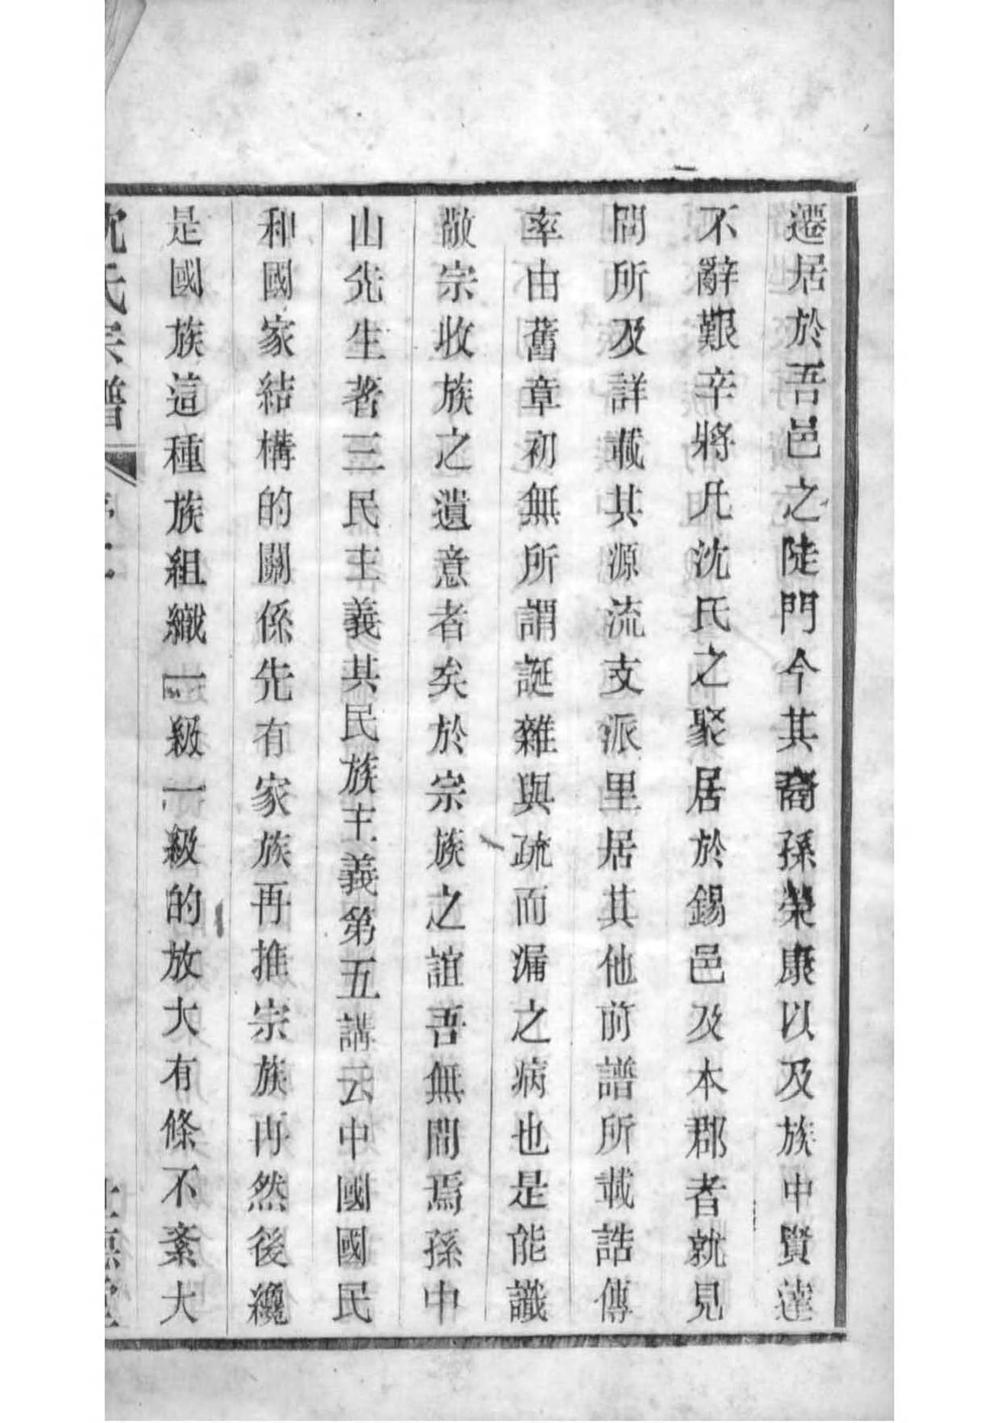 遷居於吾邑之陡門今其裔孫榮康以及族中賢達
不辭艱辛將凡沈氏之聚居於錫邑及本郡者就見
問所及詳載其源流支派里居其他前譜所載誥傳
率由舊章初無所謂誕雜與疏而漏之病也是能識
敬宗收族之遺意者矣於宗族之誼吾無間焉孫中
山先生著三民主義其民族主義第五講云中國國民
和國家結構的關係先有家族再推宗族再然後纔
是國族這種族組織一級一級的放大有條不紊大
沈氏宗譜